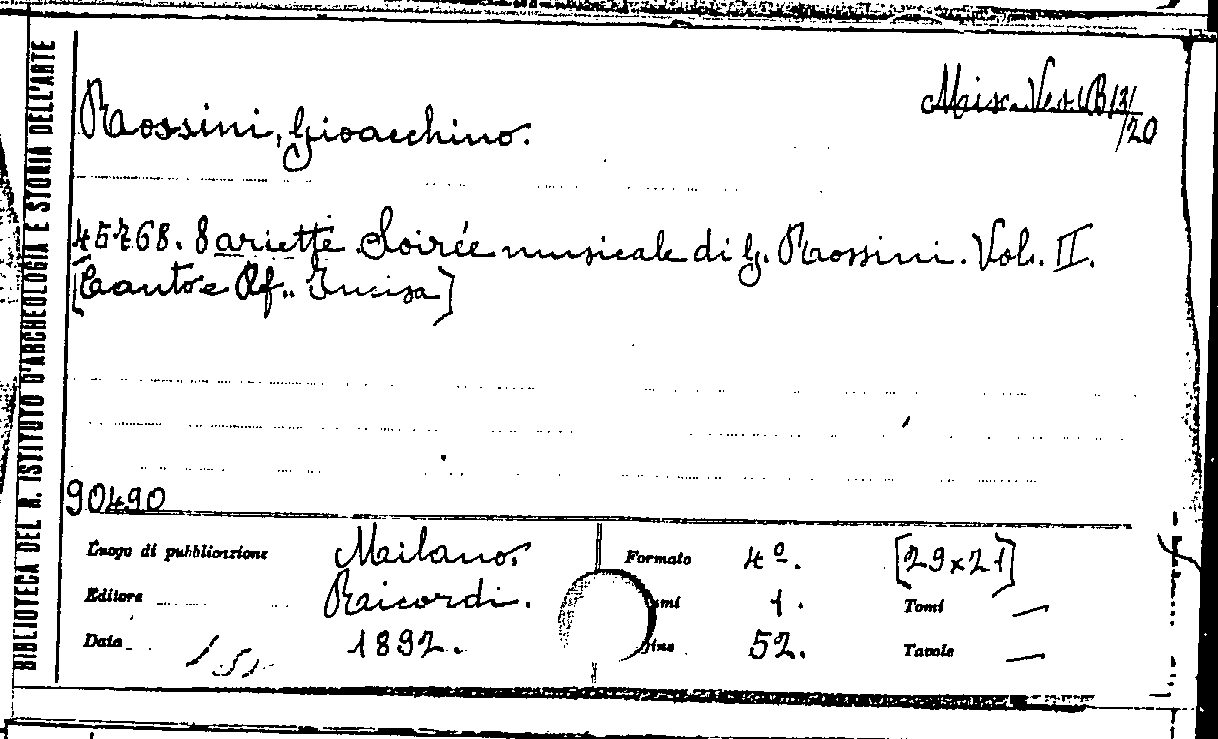 BIBLIOTECA DEL R. ISTITUTO D'ARCHEOLOGIA E STORIA DELL'ARTE
Misc. Vess. B 13/
/20
Rossini, Gioacchino.
45768. 8 ariette Soirée musicale di G. Rossini. Vol. II.
[Canto e Pf.. Incisa]
90490
Luogo di pubblicazione Milano. Formato 4º. [29x21]
Editore Ricordi. umi 1. Tomi —
Data 1892. gine 52. Tavole —